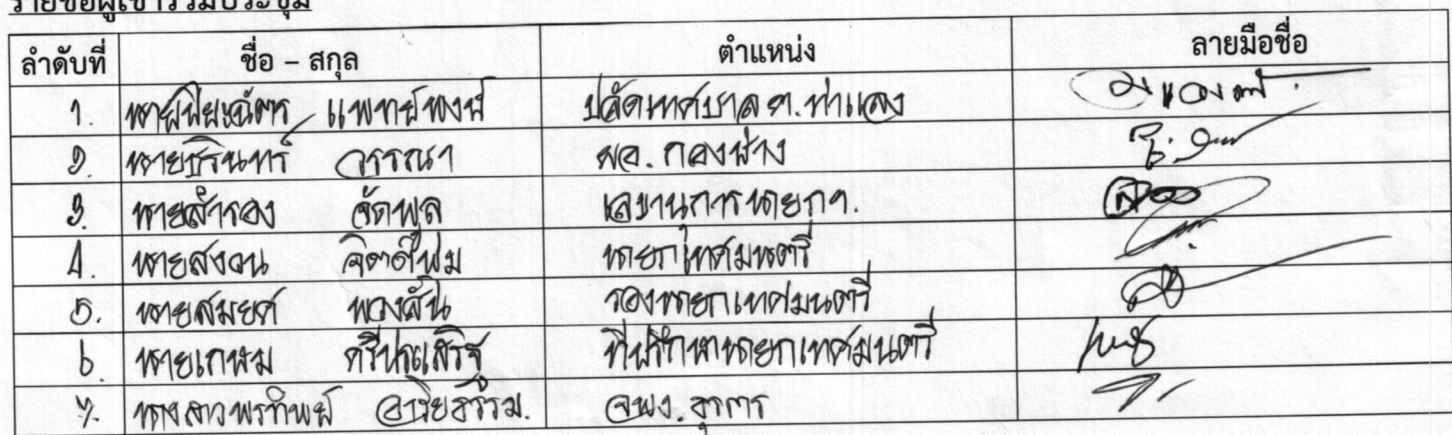 รายชื่อผู้เข้าร่วมประชุม
ลำดับที่ ชื่อ – สกุล ตำแหน่ง ลายมือชื่อ
๑. นายปิยฉัตร แพทย์พงษ์ ปลัดเทศบาล ต.ท่าแลง
๒. นายธิรินทร์ วรรณา ผอ. กองช่าง
๓. นายสำรอง จัตพูล เลขานุการนายกฯ
๔. นายสงวน จิตต์ นายกเทศมนตรี
๕. นายสมยศ พวงสั้น รองนายกเทศมนตรี
๖. นายเกษม ที่ปรึกษานายกเทศมนตรี
๗. นางสาวพรทิพย์ อริยธรรม. จพง. ธุรการ